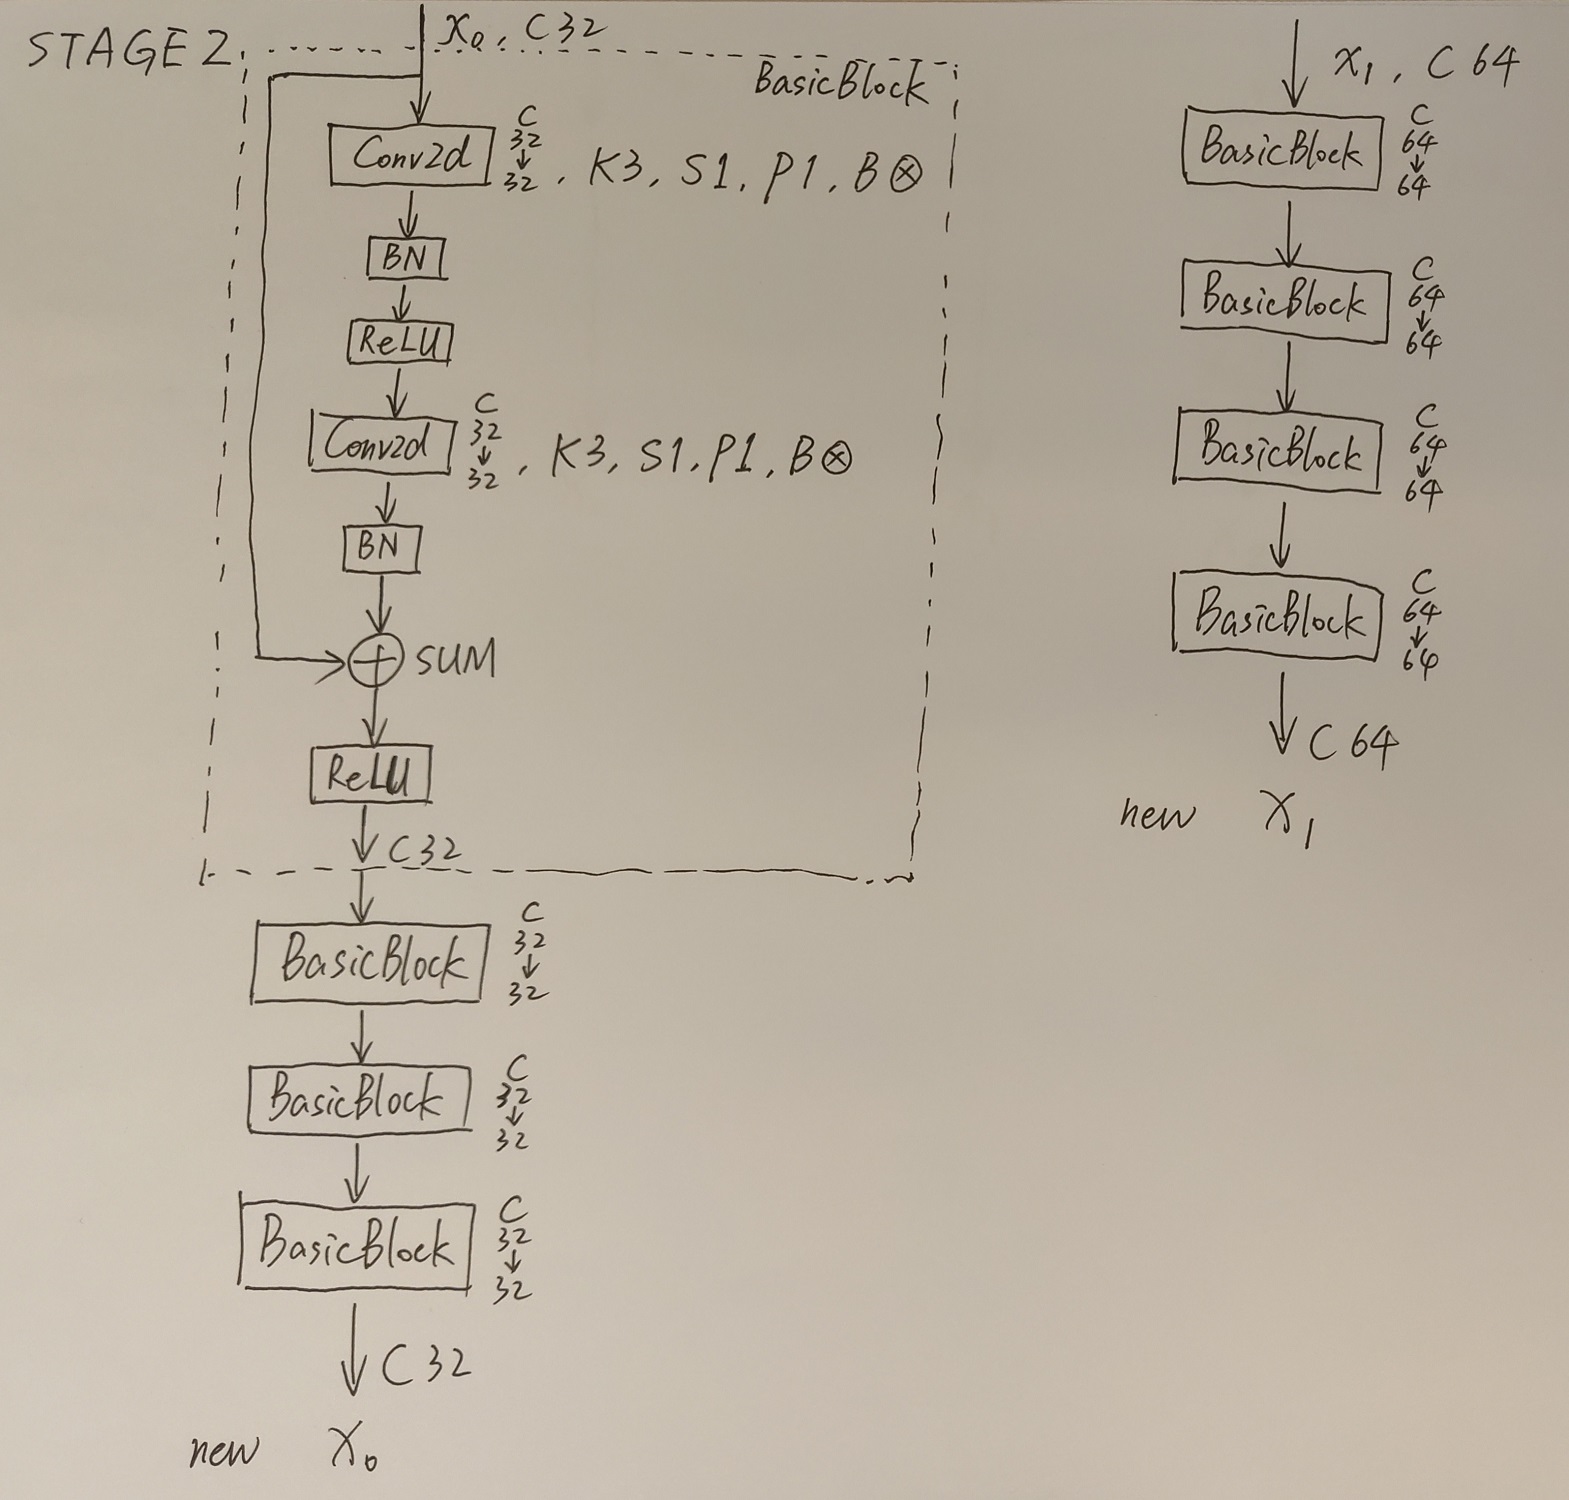 STAGE 2
X₀, C32
BasicBlock
Conv2d
C
32
↓
32, K3, S1, P1, B⊗
BN
ReLU
Conv2d
C
32
↓
32, K3, S1, P1, B⊗
BN
+ SUM
ReLU
C32
BasicBlock
C
32
↓
32
BasicBlock
C
32
↓
32
BasicBlock
C
32
↓
32
C32
new X₀
X₁, C64
BasicBlock
C
64
↓
64
BasicBlock
C
64
↓
64
BasicBlock
C
64
↓
64
BasicBlock
C
64
↓
64
C64
new X₁